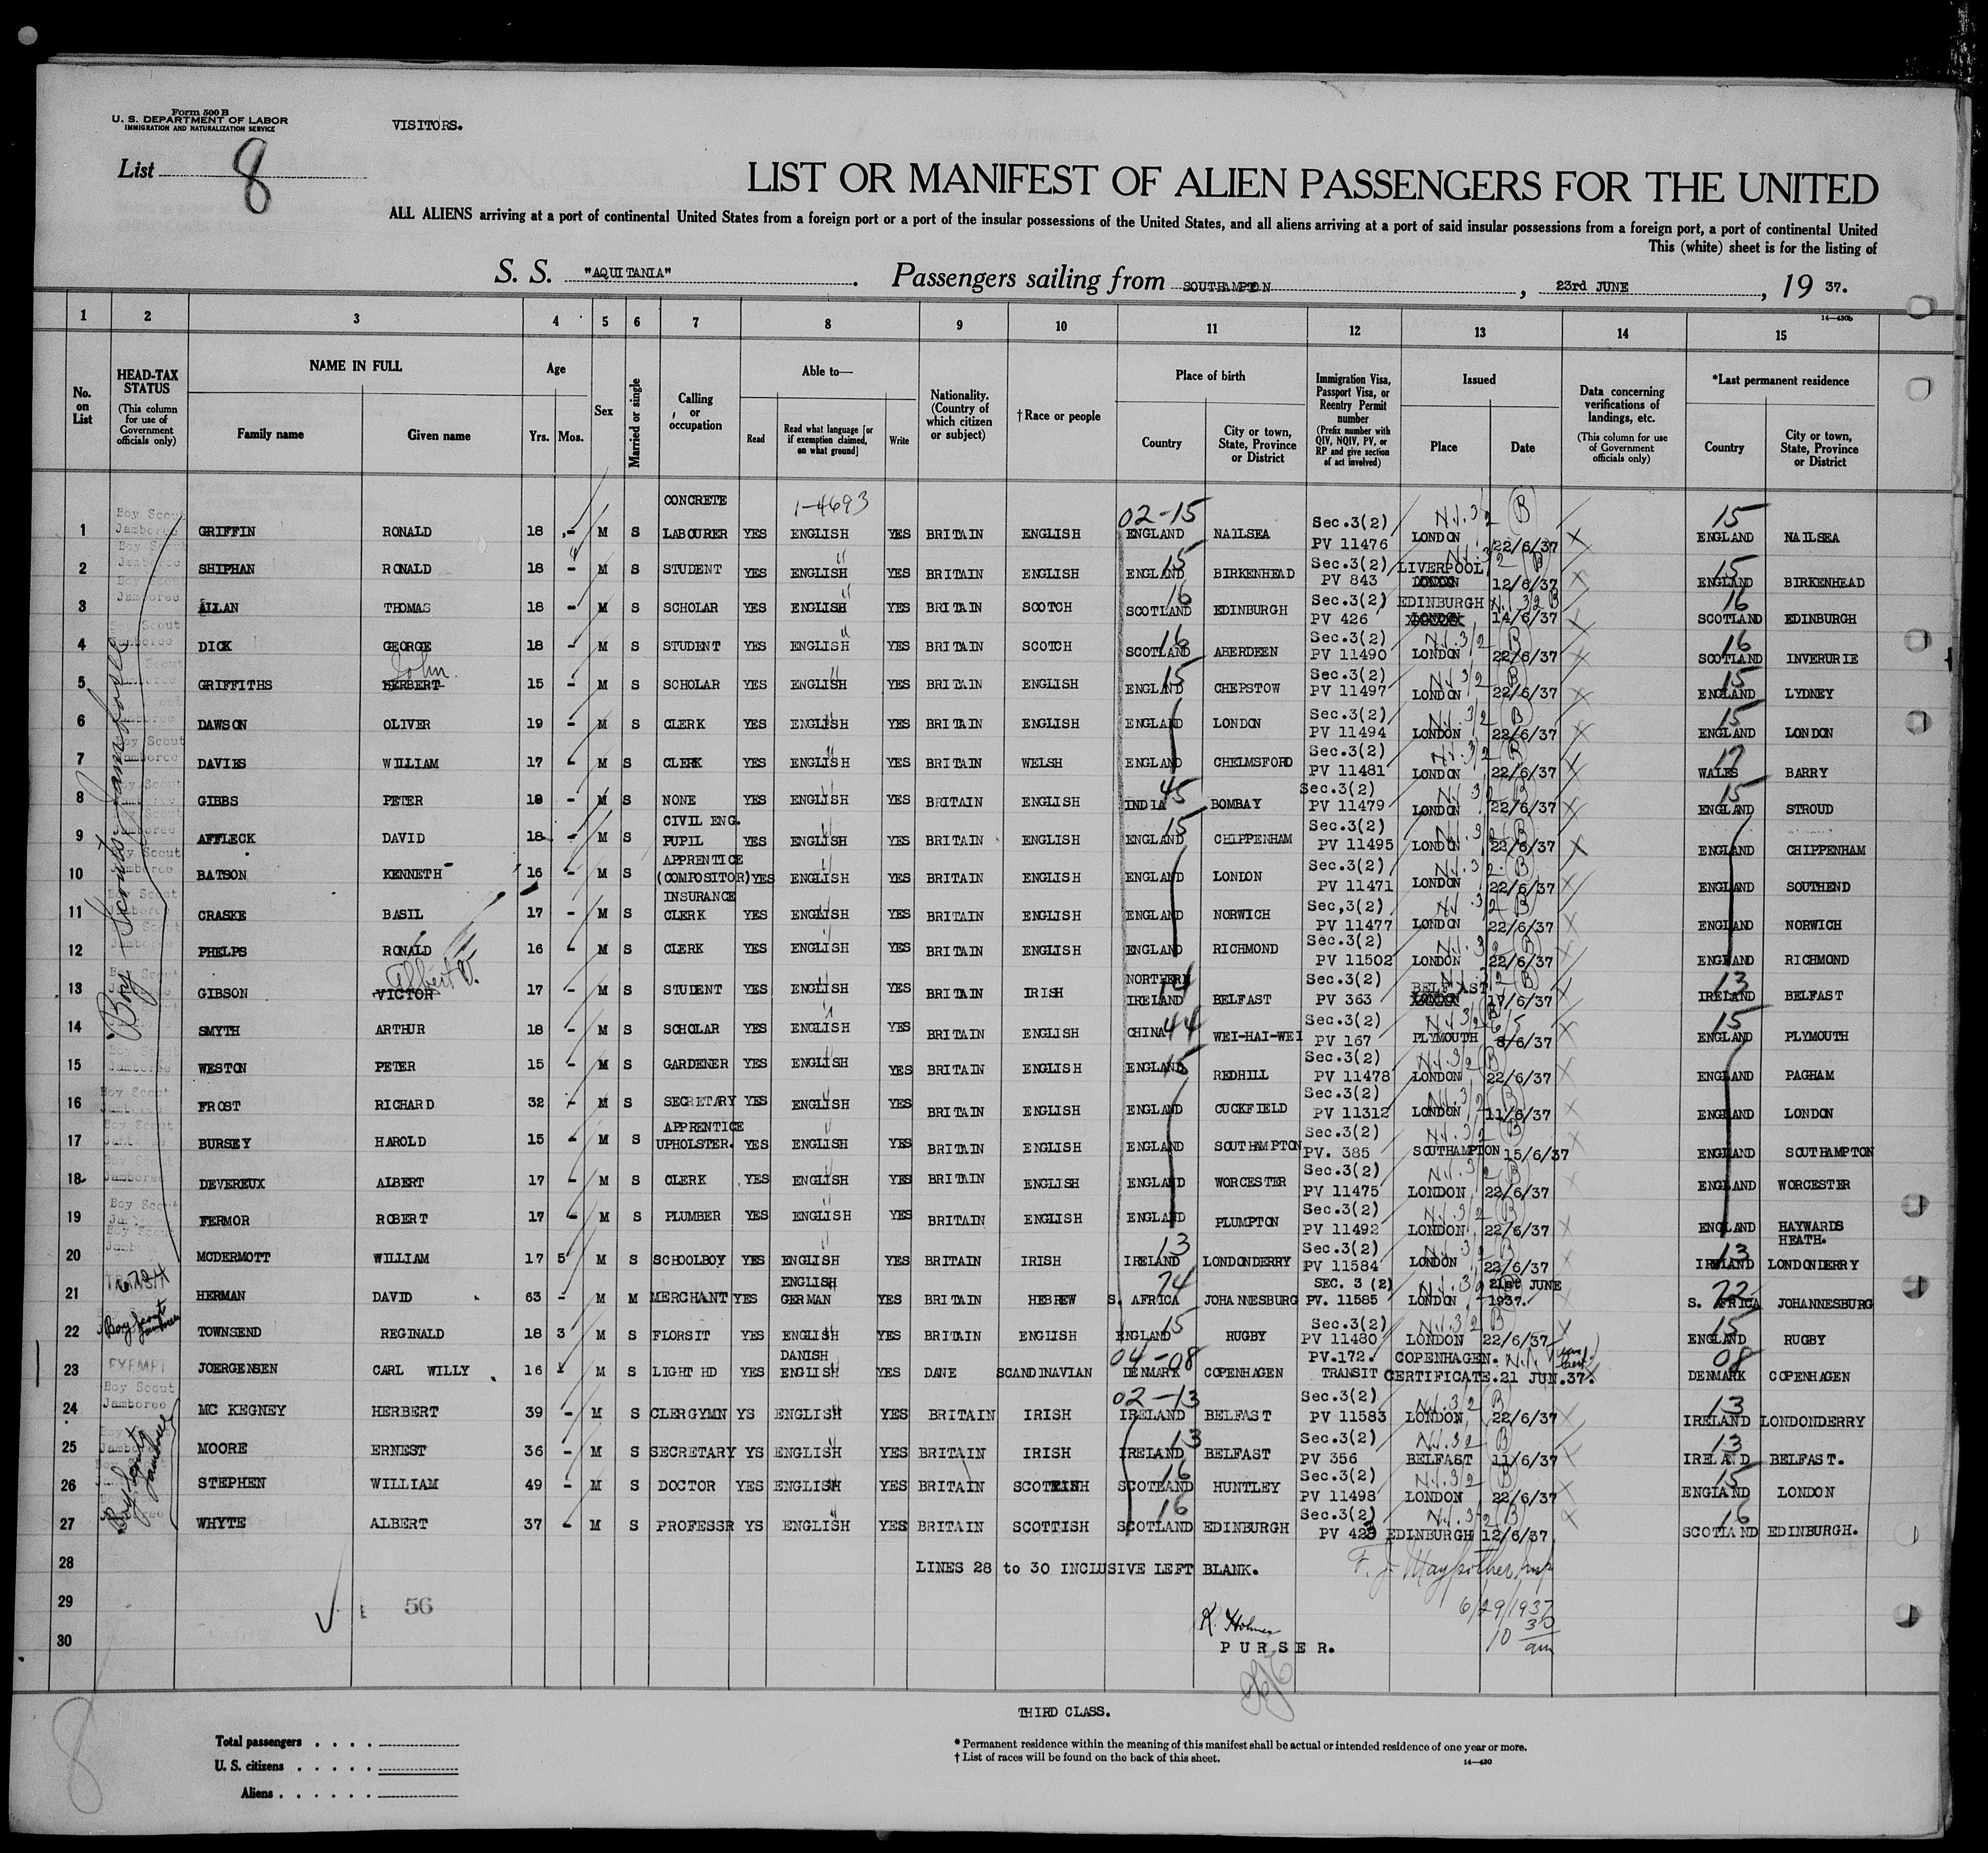 Form 500 B
U. S. DEPARTMENT OF LABOR
IMMIGRATION AND NATURALIZATION SERVICE
VISITORS.
List 8
LIST OR MANIFEST OF ALIEN PASSENGERS FOR THE UNITED
ALL ALIENS arriving at a port of continental United States from a foreign port or a port of the insular possessions of the United States, and all aliens arriving at a port of said insular possessions from a foreign port, a port of continental United
This (white) sheet is for the listing of
S. S. "AQUITANIA". Passengers sailing from SOUTHAMPTON, 23rd JUNE, 19 37.
1 2 3 4 5 6 7 8 9 10 11 12 13 14 15
14—430b
No. on List
HEAD-TAX STATUS (This column for use of Government officials only)
NAME IN FULL Family name Given name
Age Yrs. Mos.
Sex
Married or single
Calling or occupation
Able to— Read Read what language [or if exemption claimed, on what ground] Write
Nationality. (Country of which citizen or subject)
†Race or people
Place of birth Country City or town, State, Province or District
Immigration Visa, Passport Visa, or Reentry Permit number (Prefix number with QIV, NQIV, PV, or RP and give section of act involved)
Issued Place Date
Data concerning verifications of landings, etc. (This column for use of Government officials only)
*Last permanent residence Country City or town, State, Province or District
Boy Scouts Jamboree
1-4693 02-15 15
1 Boy Scout Jamboree GRIFFIN RONALD 18 - M S CONCRETE LABOURER YES ENGLISH YES BRITAIN ENGLISH ENGLAND NAILSEA Sec.3(2) PV 11476 LONDON 22/6/37 ENGLAND NAILSEA
2 SHIPHAN RONALD 18 - M S STUDENT YES ENGLISH YES BRITAIN ENGLISH ENGLAND 15 BIRKENHEAD Sec.3(2) PV 843 LIVERPOOL 12/6/37 ENGLAND 15 BIRKENHEAD
3 ALLAN THOMAS 18 - M S SCHOLAR YES ENGLISH YES BRITAIN SCOTCH SCOTLAND 16 EDINBURGH Sec.3(2) PV 426 EDINBURGH 14/6/37 SCOTLAND 16 EDINBURGH
4 DICK GEORGE 18 - M S STUDENT YES ENGLISH YES BRITAIN SCOTCH SCOTLAND 16 ABERDEEN Sec.3(2) PV 11490 LONDON 22/6/37 SCOTLAND 16 INVERURIE
5 GRIFFITHS HERBERT John 15 - M S SCHOLAR YES ENGLISH YES BRITAIN ENGLISH ENGLAND 15 CHEPSTOW Sec.3(2) PV 11497 LONDON 22/6/37 ENGLAND 15 LYDNEY
6 DAWSON OLIVER 19 - M S CLERK YES ENGLISH YES BRITAIN ENGLISH ENGLAND LONDON Sec.3(2) PV 11494 LONDON 22/6/37 ENGLAND 15 LONDON
7 DAVIES WILLIAM 17 - M S CLERK YES ENGLISH YES BRITAIN WELSH ENGLAND CHELMSFORD Sec.3(2) PV 11481 LONDON 22/6/37 WALES 17 BARRY
8 GIBBS PETER 18 - M S NONE YES ENGLISH YES BRITAIN ENGLISH INDIA 45 BOMBAY Sec.3(2) PV 11479 LONDON 22/6/37 ENGLAND 15 STROUD
9 AFFLECK DAVID 18 - M S CIVIL ENG. PUPIL YES ENGLISH YES BRITAIN ENGLISH ENGLAND 15 CHIPPENHAM Sec.3(2) PV 11495 LONDON 22/6/37 ENGLAND CHIPPENHAM
10 BATSON KENNETH 16 - M S APPRENTICE (COMPOSITOR) YES ENGLISH YES BRITAIN ENGLISH ENGLAND LONDON Sec.3(2) PV 11471 LONDON 22/6/37 ENGLAND SOUTHEND
11 CRASKE BASIL 17 - M S INSURANCE CLERK YES ENGLISH YES BRITAIN ENGLISH ENGLAND NORWICH Sec,3(2) PV 11477 LONDON 22/6/37 ENGLAND NORWICH
12 PHELPS RONALD 16 - M S CLERK YES ENGLISH YES BRITAIN ENGLISH ENGLAND RICHMOND Sec.3(2) PV 11502 LONDON 22/6/37 ENGLAND RICHMOND
13 GIBSON VICTOR Albert V. 17 - M S STUDENT YES ENGLISH YES BRITAIN IRISH NORTHERN IRELAND 14 BELFAST Sec.3(2) PV 363 BELFAST 17/6/37 IRELAND 13 BELFAST
14 SMYTH ARTHUR 18 - M S SCHOLAR YES ENGLISH YES BRITAIN ENGLISH CHINA 44 WEI-HAI-WEI Sec.3(2) PV 167 PLYMOUTH 8/6/37 ENGLAND 15 PLYMOUTH
15 WESTON PETER 15 - M S GARDENER YES ENGLISH YES BRITAIN ENGLISH ENGLAND 15 REDHILL Sec.3(2) PV 11478 LONDON 22/6/37 ENGLAND PAGHAM
16 FROST RICHARD 32 - M S SECRETARY YES ENGLISH YES BRITAIN ENGLISH ENGLAND CUCKFIELD Sec.3(2) PV 11312 LONDON 11/6/37 ENGLAND LONDON
17 BURSEY HAROLD 15 - M S APPRENTICE UPHOLSTER. YES ENGLISH YES BRITAIN ENGLISH ENGLAND SOUTHAMPTON Sec.3(2) PV. 385 SOUTHAMPTON 15/6/37 ENGLAND SOUTHAMPTON
18 DEVEREUX ALBERT 17 - M S CLERK YES ENGLISH YES BRITAIN ENGLISH ENGLAND WORCESTER Sec.3(2) PV 11475 LONDON 22/6/37 ENGLAND WORCESTER
19 FERMOR ROBERT 17 - M S PLUMBER YES ENGLISH YES BRITAIN ENGLISH ENGLAND PLUMPTON Sec.3(2) PV 11492 LONDON 22/6/37 ENGLAND HAYWARDS HEATH.
20 MCDERMOTT WILLIAM 17 5 M S SCHOOLBOY YES ENGLISH YES BRITAIN IRISH IRELAND 13 LONDONDERRY Sec.3(2) PV 11584 LONDON 22/6/37 IRELAND 13 LONDONDERRY
21 HERMAN DAVID 63 - M M MERCHANT YES ENGLISH GERMAN YES BRITAIN HEBREW S. AFRICA 74 JOHANNESBURG SEC. 3 (2) PV. 11585 LONDON 21st JUNE 1937. S. AFRICA 22 JOHANNESBURG
22 Boy Scout Jamboree TOWNSEND REGINALD 18 3 M S FLORSIT YES ENGLISH YES BRITAIN ENGLISH ENGLAND 15 RUGBY Sec.3(2) PV 11480 LONDON 22/6/37 ENGLAND 15 RUGBY
23 EXEMPT JOERGENSEN CARL WILLY 16 M S LIGHT HD YES DANISH ENGLISH YES DANE SCANDINAVIAN 04-08 DENMARK COPENHAGEN PV.172. TRANSIT CERTIFICATE. COPENHAGEN. 21 JUN.37. DENMARK 08 COPENHAGEN
24 Boy Scout Jamboree MC KEGNEY HERBERT 39 - M S CLERGYMN YS ENGLISH YES BRITAIN IRISH 02-13 IRELAND BELFAST Sec.3(2) PV 11583 LONDON 22/6/37 IRELAND 13 LONDONDERRY
25 MOORE ERNEST 36 - M S SECRETARY YS ENGLISH YES BRITAIN IRISH IRELAND 13 BELFAST Sec.3(2) PV 356 BELFAST 11/6/37 IRELAND 13 BELFAST.
26 STEPHEN WILLIAM 49 - M S DOCTOR YES ENGLISH YES BRITAIN SCOTTISH SCOTLAND 16 HUNTLEY Sec.3(2) PV 11498 LONDON 22/6/37 ENGLAND 15 LONDON
27 WHYTE ALBERT 37 - M S PROFESSR YS ENGLISH YES BRITAIN SCOTTISH SCOTLAND 16 EDINBURGH Sec.3(2) PV 423 EDINBURGH 12/6/37 SCOTLAND 16 EDINBURGH.
Boy Scouts Jamboree
28 LINES 28 to 30 INCLUSIVE LEFT BLANK.
29 56 6/29/1937
30 10 30 am
K. Holmes
PURSER.
THIRD CLASS.
Total passengers
U. S. citizens
Aliens
* Permanent residence within the meaning of this manifest shall be actual or intended residence of one year or more.
† List of races will be found on the back of this sheet.
14—430
8